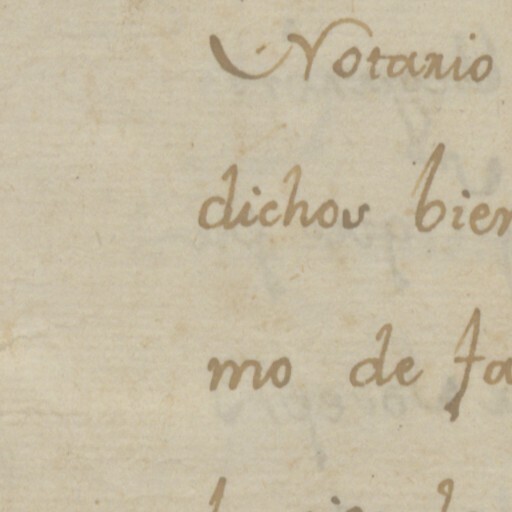 Notario
dichos bien
mo de fa